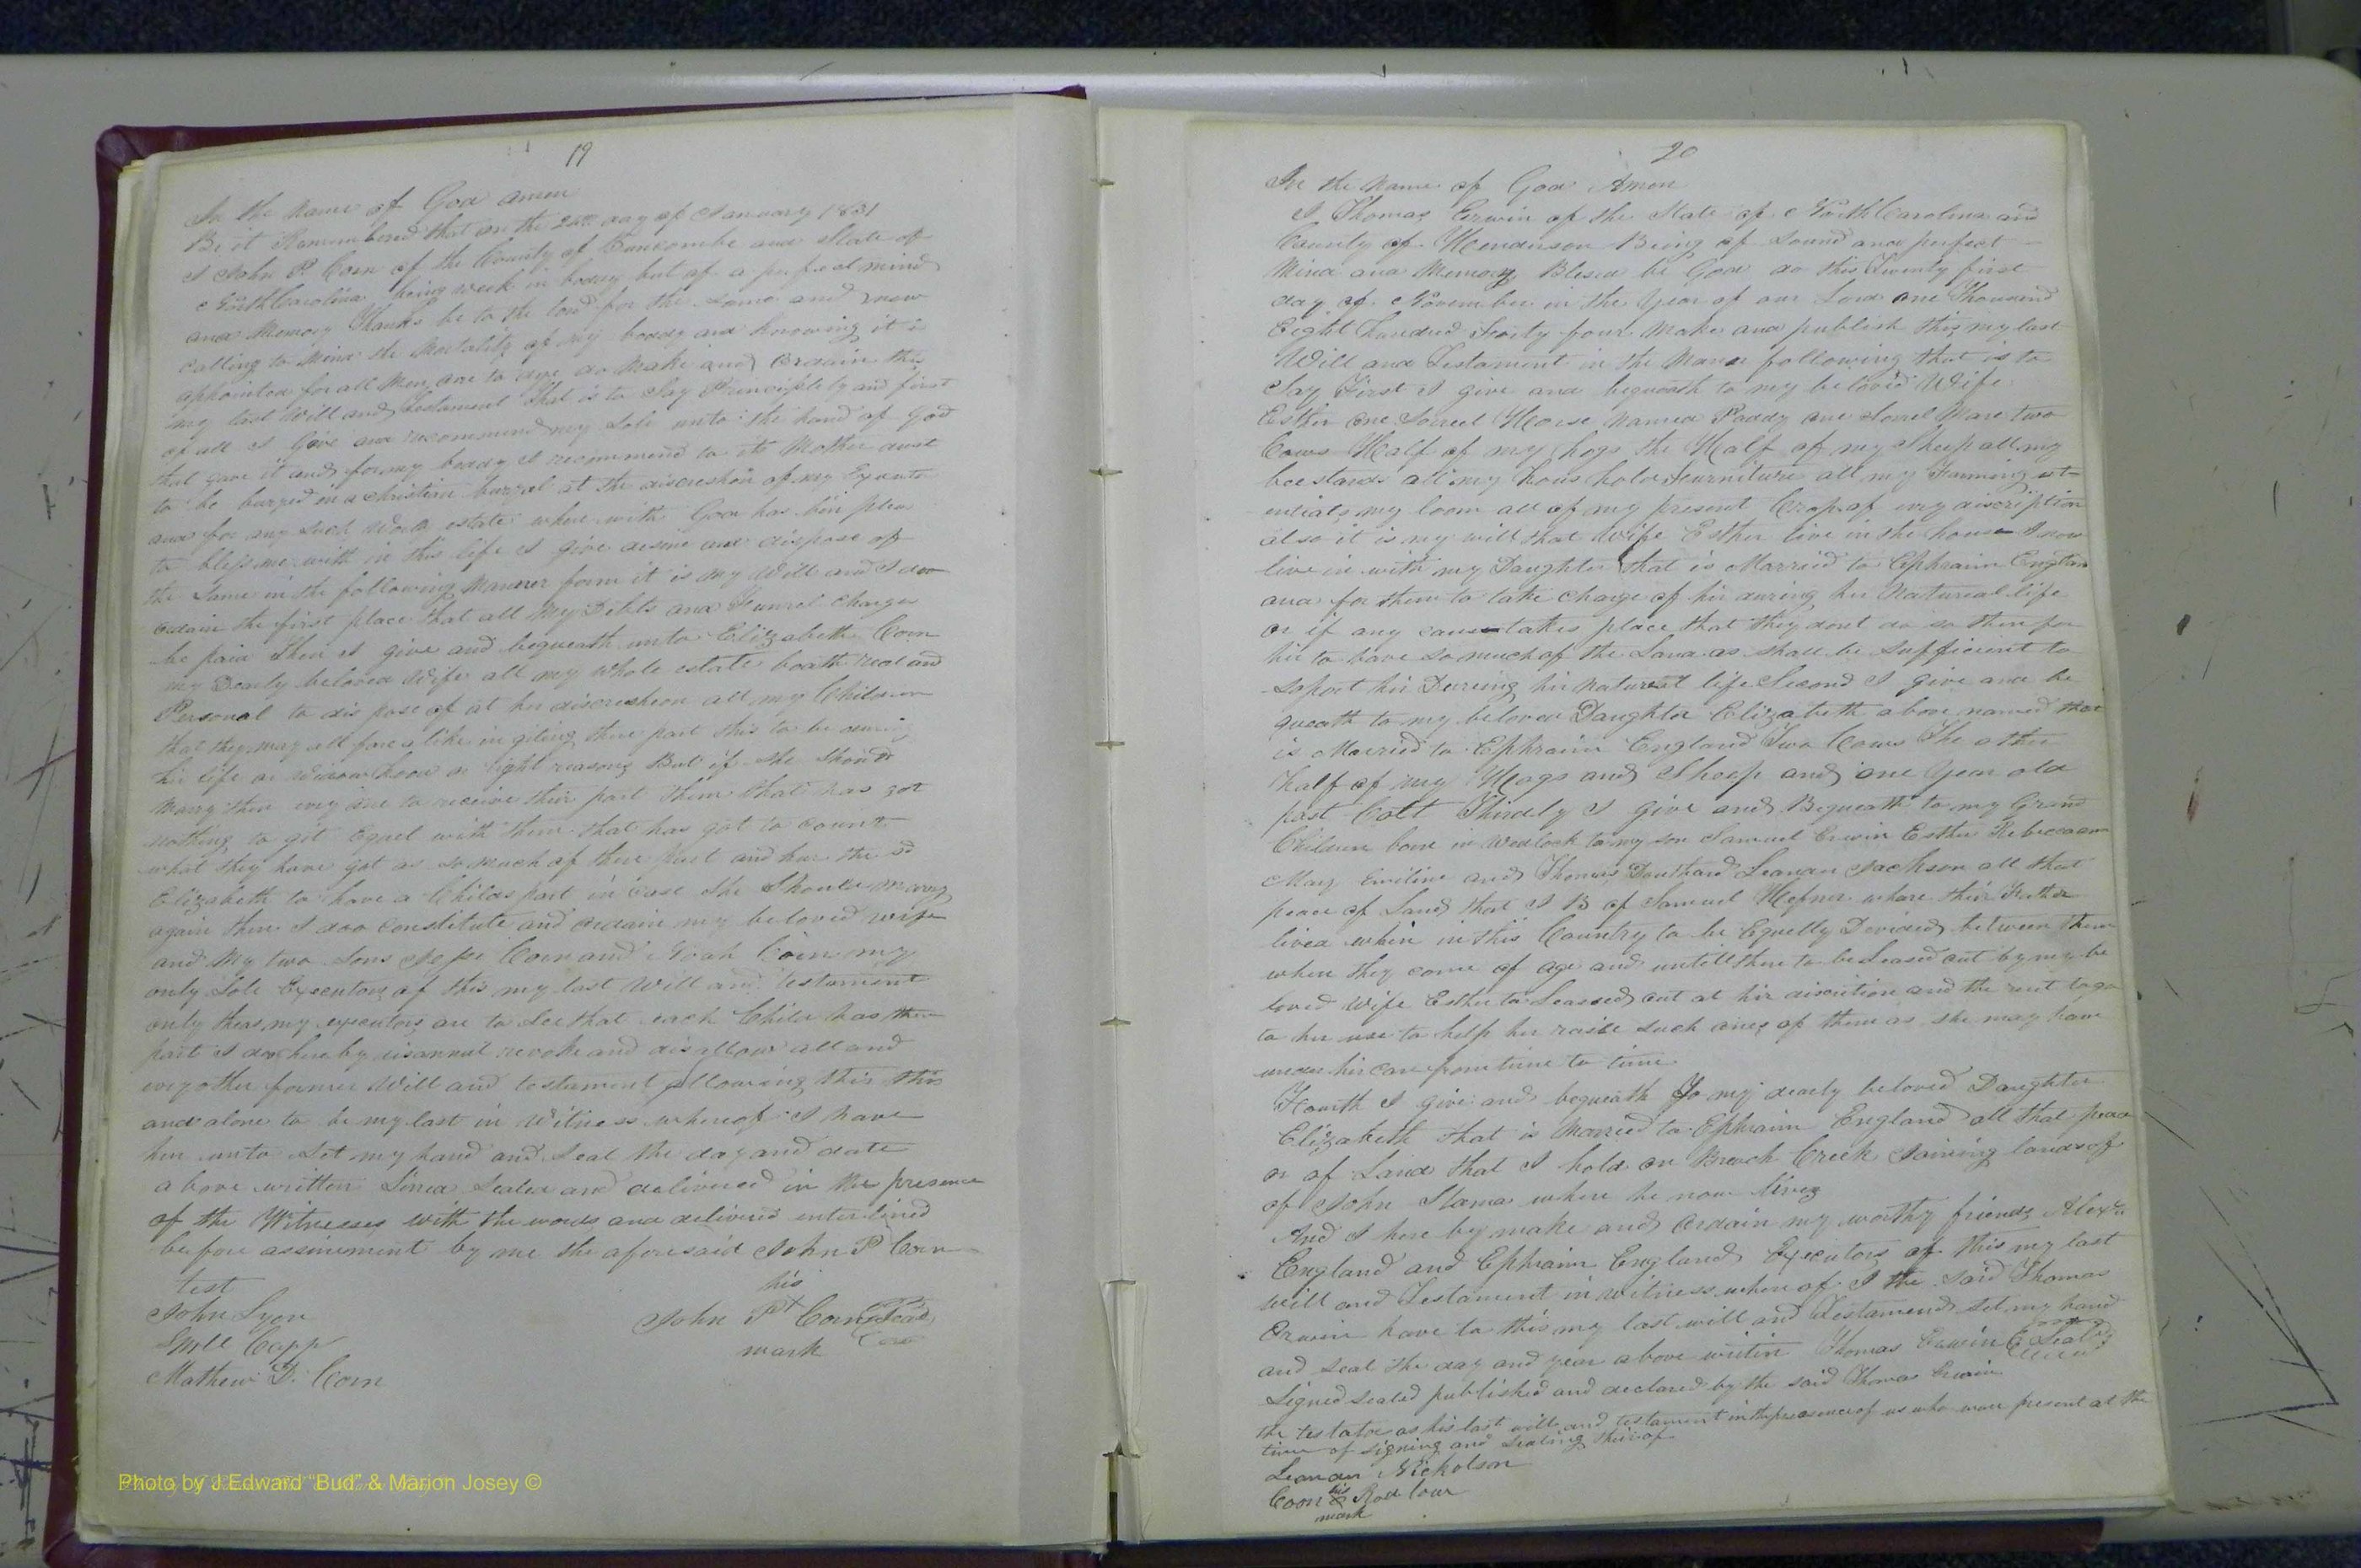 19
In the name of God amen
Be it Remembered that on the 24th day of January 1831
I John P. Corn of the County of Buncombe and State of
North Carolina being week in boddy but of a perfect mind
and Memory Thanks be to the lord for the same and now
calling to mind the Mortality of my boddy and knowing it is
appointed for all Men one to dye do make and Ordain this
my last Will and Testament that is to Say Principlely and first
of all I Give and recommend my Sole unto the hand of God
that gave it and for my boddy I recommend to its Mother dust
to be buryed in a christian buryal at the discreshion of my Executo
and for any such World estate where with God has bin pleas
to bless me with in this life I give desire and dispose of
the Same in the following Manner form it is my Will and I doo
ordain the first place that all My Debts and Funrel charges
be paid then I give and bequeath unto Elizabeth Corn
my Dearly beloved Wife all my whole estate boath real and
Personal to dis pose of at her discreshion all my Children
that they may all fare a like in giting there part this to be during
her life or Widow hood or light reasons But if she should
Marry then evry one to receive their part them that has got
nothing to git Equel with them that has got to count
what they have got as so much of there part and her the sd
Elizabeth to have a Childs part in case she Should marry
again then I doo constitute and ordain my beloved wife
and My two Sons Jesse Corn and Noah Corn my
only Sole Executors of this my last Will and testament
only theas my executors are to See that each Child has there
part I doo here by disannul revoke and disallow all and
evry other former Will and testament allowing this this
and alone to be my last in Witness whereof I have
her unto Set my hand and Seal the day and date
above written Sined Sealed and delivered in the presence
of the Witnesses with the words and delivered enterlined
before assinement by me the aforesaid John P Corn
test
his
John Lyon
John P X Corn Seal
Capp
mark
Mathew D. Corn
Photo by J Edward "Bud" & Marion Josey ©
20
In the Name of God Amen
I Thomas Erwin of the State of North Carolina and
County of Henderson Being of Sound and perfect
Mind and Memory Blesed be God do this Twenty first
day of November in the Year of our Lord one Thousand
Eight Hundred Forty four Make and publish this my last
Will and Testament in the Maner following that is to
Say First I give and bequeath to my beloved Wife
Esther one Sorrel Horse Named Paddy one Sorrel Mare two
Cows Half of my hogs the Half of my Sheep all my
bee stands all my hous hold furniture all my Farming ut
entials my loom all of my present Crop of evry discription
also it is my will that Wife Esther live in the house I now
live in with my Daughter that is Married to Ephraim England
and for them to take charge of hir during her Natureal life
or if any cause takes place that they dont do so then for
hir to have so much of the Land as shall be Sufficient to
soport hir Dureing hir natureal life Second I give and be
queath to my beloved Daughter Elizabeth above named that
is Married to Ephraim England Two Cows The other
half of my Hogs and Sheep and one Year old
past Colt Thirdly I give and Bequeath to my Grand
Children born in Wedlock to my son Samuel Erwin Esther Rebecca ann
Mary Emiline and Thomas Southard Leanan Jackson all that
peace of Land that I B of Samuel Hefner whare their Father
lived when in this Country to be Equelly Devided between them
when they come of age and untill then to be Leased out by my be
loved Wife Esther to Leased out at hir discrition and the rent to go
to her use to help her raise such ones of them as she may have
under hir care from time to time
Fourth I give and bequeath To my dearly beloved Daughter
Elizabeth that is Married to Ephraim England all that peace
or of Land that I hold on Creek Joining lands of
of John Stama where he now lives
And I here by make and Ordain my worthy friends Alexr
England and Ephraim England Executors of this my last
will and Testament in witness where of I the said Thomas
Erwin have to this my last will and Testament Set my hand
and Seal the day and year above writin Thomas Erwin Seal
Signed sealed published and declared by the said Thomas Erwin
the testator as his last will and testament in the presence of us who ware present at the
time of signing and sealing thereof
Leanan Nickolson
his
Coon X
mark